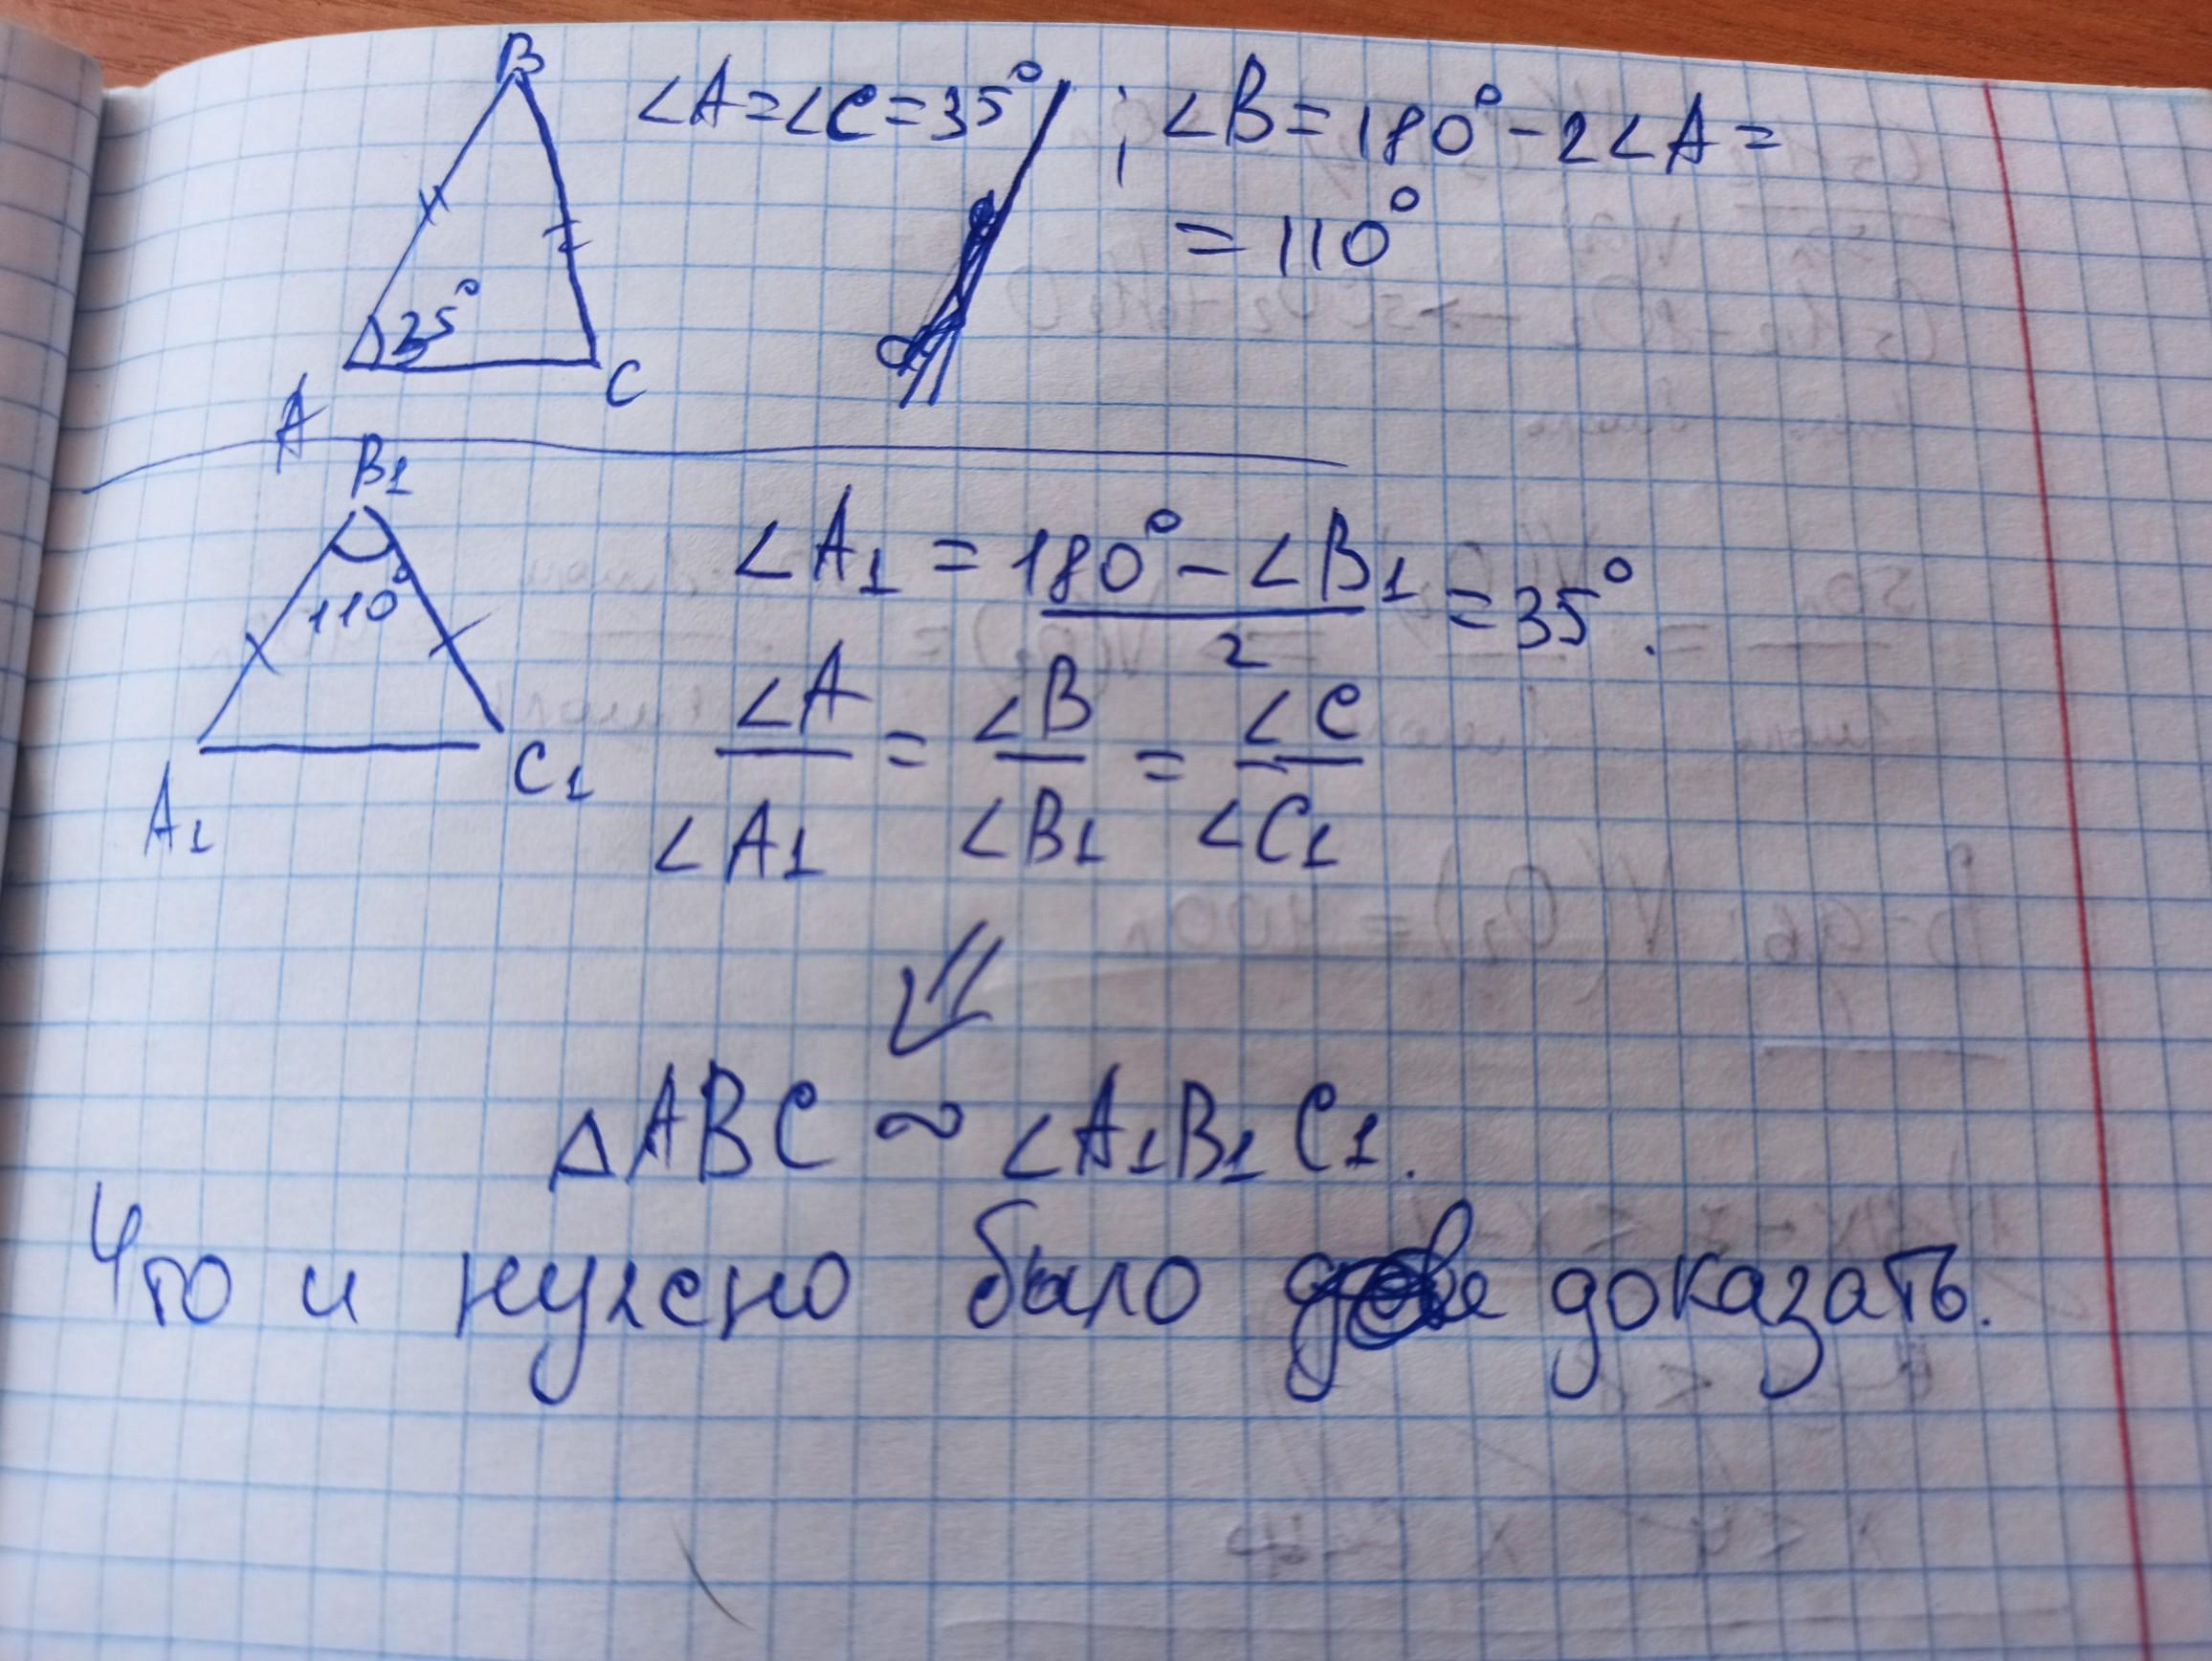 B
∠A=∠C=35° ; ∠B=180°-2∠A=
=110°
35°
A
C
B1
110°
A1
C1
∠A1 = 180° - ∠B1 = 35°.
2
∠A = ∠B = ∠C
∠A1 ∠B1 ∠C1
⇙
△ABC ~ ∠A1B1C1.
Что и нужно было доказать.